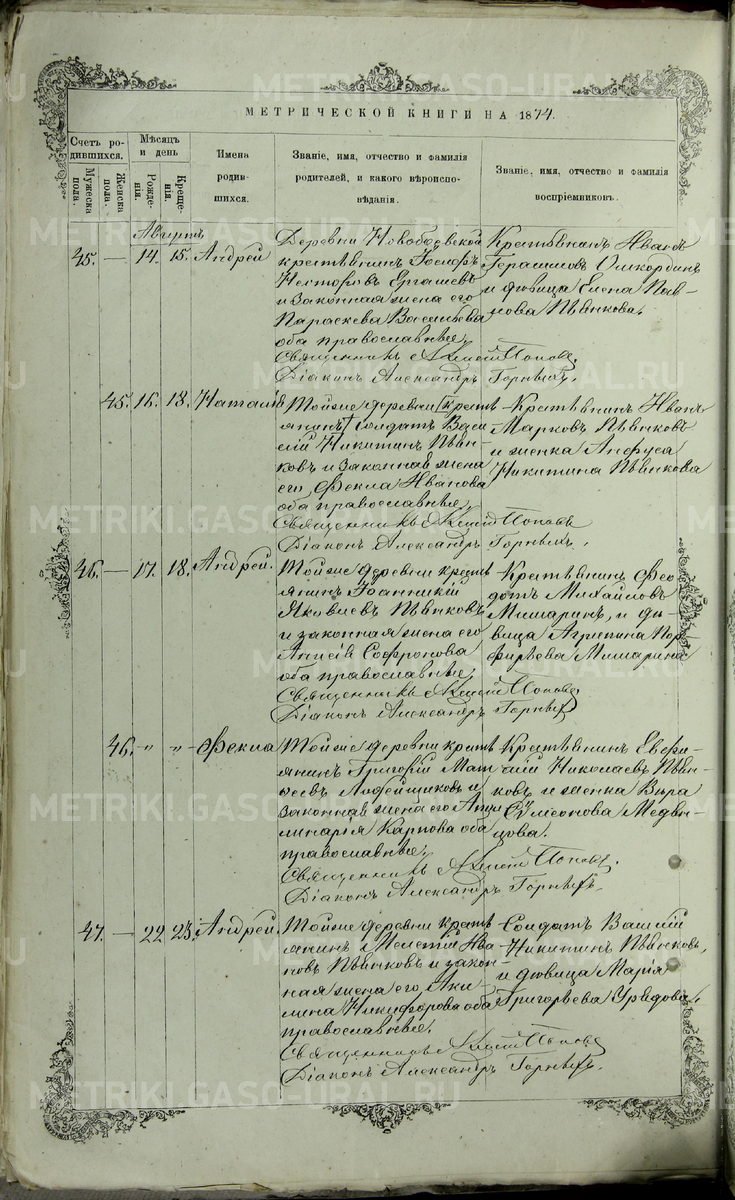 МЕТРИЧЕСКОЙ КНИГИ НА 1874.
Счетъ родившихся.
Мужеска пола.
Женска пола.
Мѣсяцъ и день
Рожденія.
Крещенія.
Имена родившихся.
Званіе, имя, отчество и фамилія родителей, и какого вѣроисповѣданія.
Званіе, имя, отчество и фамилія воспріемниковъ.
Августъ
45. — 14. 15. Андрей
Деревни
крестьянинъ Іосифъ
Несторовъ
и законная жена его
Параскева Васильева
оба православные.
Священникъ Попов
Діаконъ Александръ Горныхъ.
Крестьянинъ Иванъ
Герасимовъ
и дѣвица Елена Пав-
лова Пьянкова.
45. 16. 18. Наталія
Тойже деревни крестьянинъ солдатъ Васи-
лій Никитинъ Пьян-
ковъ и законная жена
его Фекла Иванова
оба православные.
Священникъ Попов
Діаконъ Александръ Горныхъ.
Крестьянинъ Иванъ
Марковъ Пьянковъ
и женка Анфуса
Никитина Пьянкова
46. — 17. 18. Андрей.
Тойже деревни крестьянинъ Іоанникій
Яковлевъ Пьянковъ
и законная жена его
Анисія Софронова
оба православные.
Священникъ Попов
Діаконъ Александръ Горныхъ
Крестьянинъ Фео-
дотъ Михайловъ
Мишаринъ, и дѣ-
вица Агрипина Пор-
фирьева Мишарина
46. " " Фекла
Тойже деревни крестьянинъ Григорій Мат-
вѣевъ и
законная жена его Апол-
линарія Карпова оба
православные.
Священникъ Попов
Діаконъ Александръ Горныхъ.
Крестьянинъ Евфи-
мій Николаевъ Пьян-
ковъ и женка Вѣра
Симеонова Медвѣ-
цова.
47. — 22 23. Андрей.
Тойже деревни крестьянинъ Мелетій Ива-
новъ Пьянковъ и закон-
ная жена его Аки-
лина Никифорова оба
православные.
Священникъ Попов
Діаконъ Александръ Горныхъ.
Солдатъ Василій
Никитинъ Пьянковъ,
и дѣвица Марія
Григорьева
METRIKI.GASO-URAL.RU